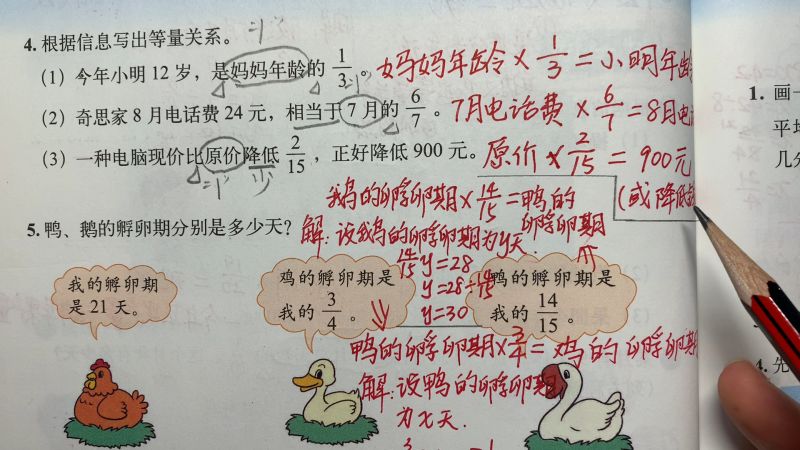 4. 根据信息写出等量关系。
(1) 今年小明 12 岁，是妈妈年龄的 1/3。 妈妈年龄 × 1/3 = 小明年龄
(2) 奇思家 8 月电话费 24 元，相当于 7 月的 6/7。 7月电话费 × 6/7 = 8月电
(3) 一种电脑现价比原价降低 2/15，正好降低 900 元。 原价 × 2/15 = 900元
="1"
少
(或降低
鹅的孵卵期 × 14/15 = 鸭的孵卵期
5. 鸭、鹅的孵卵期分别是多少天？
解：设鹅的孵卵期为y天.
14/15 y = 28
y = 28 ÷ 14/15
y = 30
我的孵卵期
是 21 天。
鸡的孵卵期是
我的 3/4 。
鸭的孵卵期是
我的 14/15 。
鸭的孵卵期 × 3/4 = 鸡的孵卵期
解：设鸭的孵卵期
为x天.
1. 画一
平均
几分
4. 先